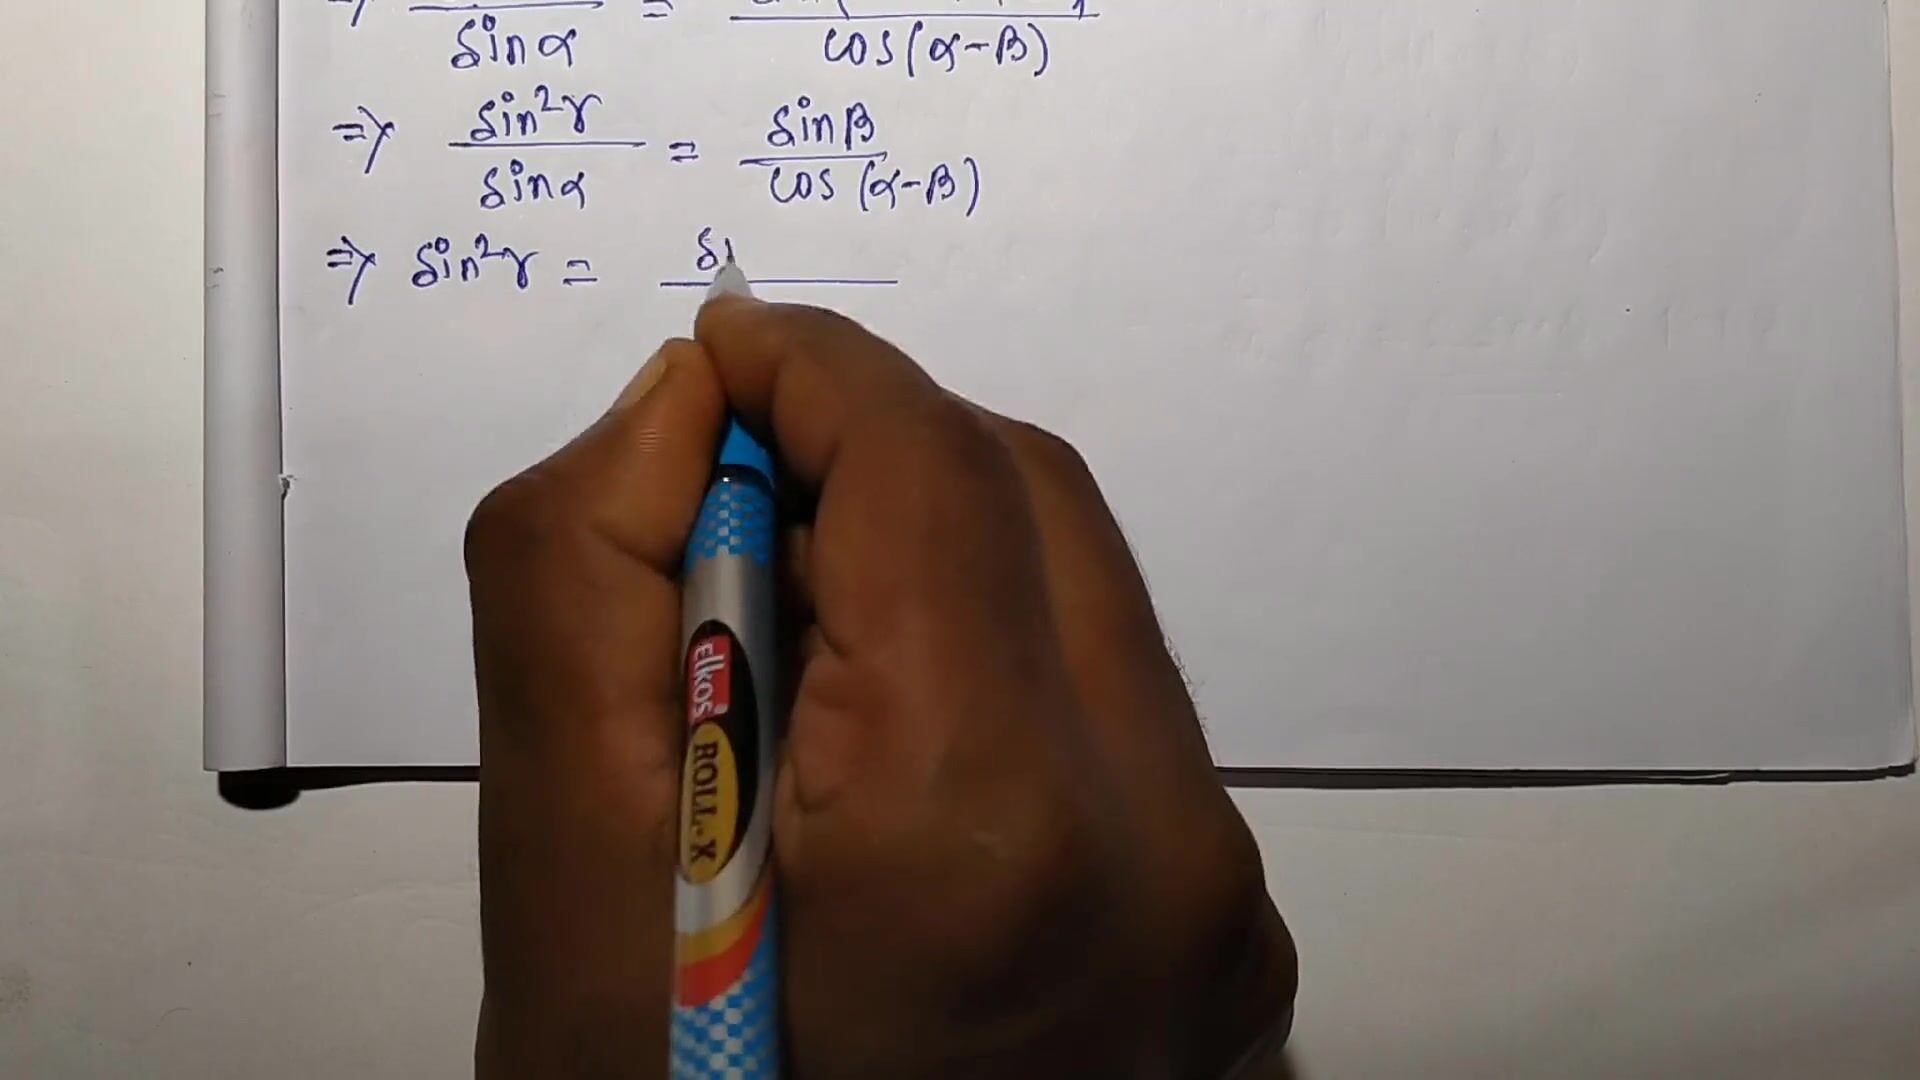 sinα = cos(α-β)
=> sin²γ / sinα = sinβ / cos(α-β)
=> sin²γ =
elkos
ROLL-X